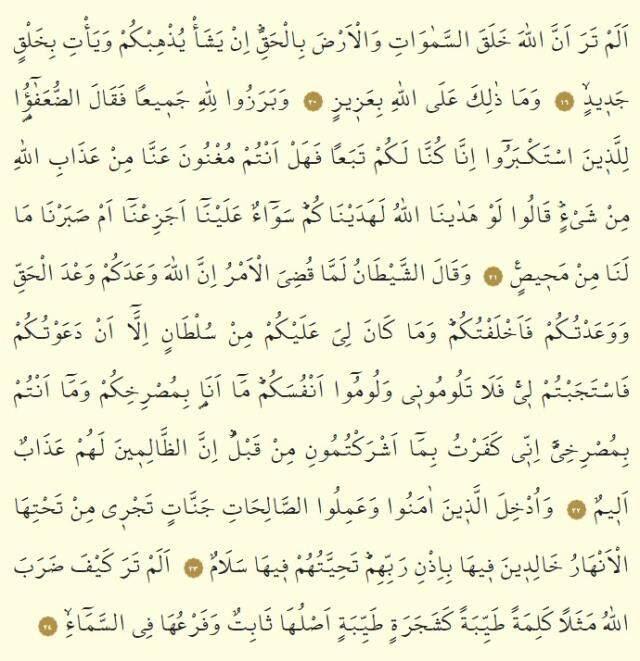 اَلَمْ تَرَ اَنَّ اللّٰهَ خَلَقَ السَّمٰوَاتِ وَالْاَرْضَ بِالْحَقِّۜ اِنْ يَشَأْ يُذْهِبْكُمْ وَيَأْتِ بِخَلْقٍ
جَد۪يدٍۙ ﴿١٩﴾ وَمَا ذٰلِكَ عَلَى اللّٰهِ بِعَز۪يزٍ ﴿٢٠﴾ وَبَرَزُوا لِلّٰهِ جَم۪يعًا فَقَالَ الضُّعَفٰٓؤُ۬ا
لِلَّذ۪ينَ اسْتَكْبَرُٓوا اِنَّا كُنَّا لَكُمْ تَبَعًا فَهَلْ اَنْتُمْ مُغْنُونَ عَنَّا مِنْ عَذَابِ اللّٰهِ
مِنْ شَيْءٍۜ قَالُوا لَوْ هَدٰينَا اللّٰهُ لَهَدَيْنَاكُمْۜ سَوَٓاءٌ عَلَيْنَٓا اَجَزِعْنَٓا اَمْ صَبَرْنَا مَا
لَنَا مِنْ مَح۪يصٍ۟ ﴿٢١﴾ وَقَالَ الشَّيْطَانُ لَمَّا قُضِيَ الْاَمْرُ اِنَّ اللّٰهَ وَعَدَكُمْ وَعْدَ الْحَقِّ
وَوَعَدْتُكُمْ فَاَخْلَفْتُكُمْۜ وَمَا كَانَ لِيَ عَلَيْكُمْ مِنْ سُلْطَانٍ اِلَّٓا اَنْ دَعَوْتُكُمْ
فَاسْتَجَبْتُمْ ل۪يۚ فَلَا تَلُومُون۪ي وَلُومُٓوا اَنْفُسَكُمْۜ مَٓا اَنَا۬ بِمُصْرِخِكُمْ وَمَٓا اَنْتُمْ
بِمُصْرِخِيَّۜ اِنّ۪ي كَفَرْتُ بِمَٓا اَشْرَكْتُمُونِ مِنْ قَبْلُۜ اِنَّ الظَّالِم۪ينَ لَهُمْ عَذَابٌ
اَل۪يمٌ ﴿٢٢﴾ وَاُدْخِلَ الَّذ۪ينَ اٰمَنُوا وَعَمِلُوا الصَّالِحَاتِ جَنَّاتٍ تَجْر۪ي مِنْ تَحْتِهَا
الْاَنْهَارُ خَالِد۪ينَ ف۪يهَا بِاِذْنِ رَبِّهِمْۜ تَحِيَّتُهُمْ ف۪يهَا سَلَامٌ ﴿٢٣﴾ اَلَمْ تَرَ كَيْفَ ضَرَبَ
اللّٰهُ مَثَلًا كَلِمَةً طَيِّبَةً كَشَجَرَةٍ طَيِّبَةٍ اَصْلُهَا ثَابِتٌ وَفَرْعُهَا فِي السَّمَٓاءِۙ ﴿٢٤﴾